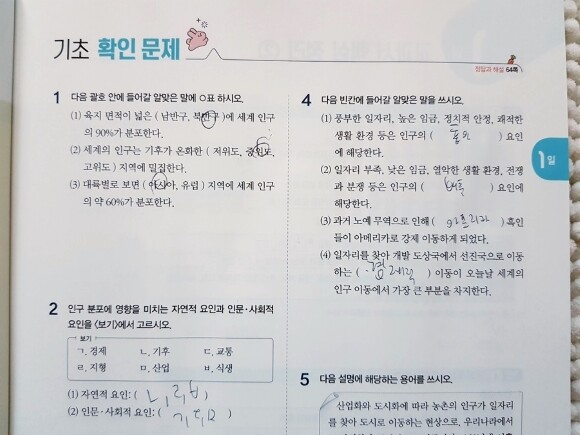 기초 확인 문제
정답과 해설 64쪽
1 다음 괄호 안에 들어갈 알맞은 말에 ○표 하시오.
(1) 육지 면적이 넓은 ( 남반구, 북반구 )에 세계 인구
의 90%가 분포한다.
(2) 세계의 인구는 기후가 온화한 ( 저위도, 중위도,
고위도 ) 지역에 밀집한다.
(3) 대륙별로 보면 ( 아시아, 유럽 ) 지역에 세계 인구
의 약 60%가 분포한다.
2 인구 분포에 영향을 미치는 자연적 요인과 인문·사회적
요인을 <보기>에서 고르시오.
보기
ㄱ. 경제 ㄴ. 기후 ㄷ. 교통
ㄹ. 지형 ㅁ. 산업 ㅂ. 식생
(1) 자연적 요인: ( ㄴ, ㄹ, ㅂ )
(2) 인문·사회적 요인: ( ㄱ, ㄷ, ㅁ )
4 다음 빈칸에 들어갈 알맞은 말을 쓰시오.
(1) 풍부한 일자리, 높은 임금, 정치적 안정, 쾌적한
생활 환경 등은 인구의 ( 흡인 ) 요인
에 해당한다.
(2) 일자리 부족, 낮은 임금, 열악한 생활 환경, 전쟁
과 분쟁 등은 인구의 ( 배출 ) 요인에
해당한다.
(3) 과거 노예 무역으로 인해 ( 아프리카 ) 흑인
들이 아메리카로 강제 이동하게 되었다.
(4) 일자리를 찾아 개발 도상국에서 선진국으로 이동
하는 ( 경제적 ) 이동이 오늘날 세계의
인구 이동에서 가장 큰 부분을 차지한다.
1일
5 다음 설명에 해당하는 용어를 쓰시오.
산업화와 도시화에 따라 농촌의 인구가 일자리
를 찾아 도시로 이동하는 현상으로, 우리나라에서